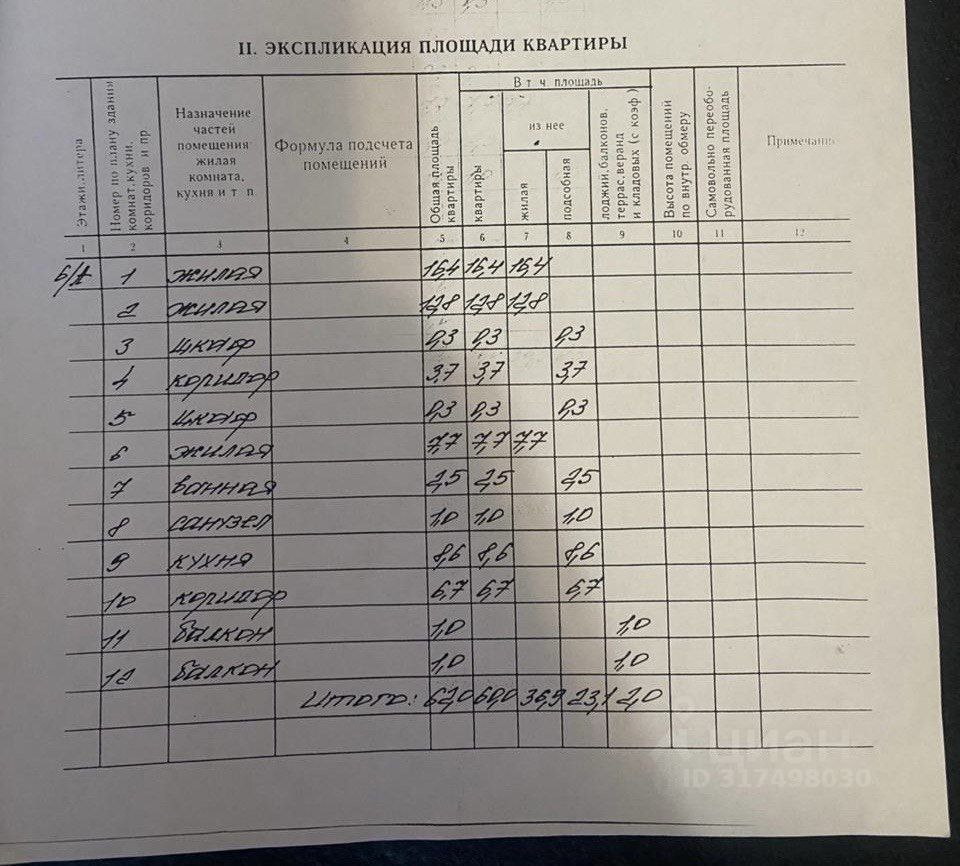 II. ЭКСПЛИКАЦИЯ ПЛОЩАДИ КВАРТИРЫ
Этажи, литера
Номер по плану здания
комнат, кухни,
коридоров и пр
Назначение
частей
помещения:
жилая
комната,
кухня и т п
Формула подсчета
помещений
Общая площадь
квартиры
В т ч площадь
квартиры
из нее
жилая
подсобная
лоджий, балконов,
террас, веранд
и кладовых (с коэф)
Высота помещений
по внутр. обмеру
Самовольно переобо-
рудованная площадь
Примечание
1 2 3 4 5 6 7 8 9 10 11 12
1 жилая 16,4 16,4 16,4
2 жилая 12,8 12,8 12,8
3 шкаф 0,3 0,3 0,3
4 коридор 3,7 3,7 3,7
5 шкаф 0,3 0,3 0,3
6 жилая 7,7 7,7 7,7
7 ванная 2,5 2,5 2,5
8 санузел 1,0 1,0 1,0
9 кухня 8,6 8,6 8,6
10 коридор 6,7 6,7 6,7
11 балкон 1,0 1,0
12 балкон 1,0 1,0
Итого: 62,0 60,0 36,9 23,1 2,0
циан
ID 317498030